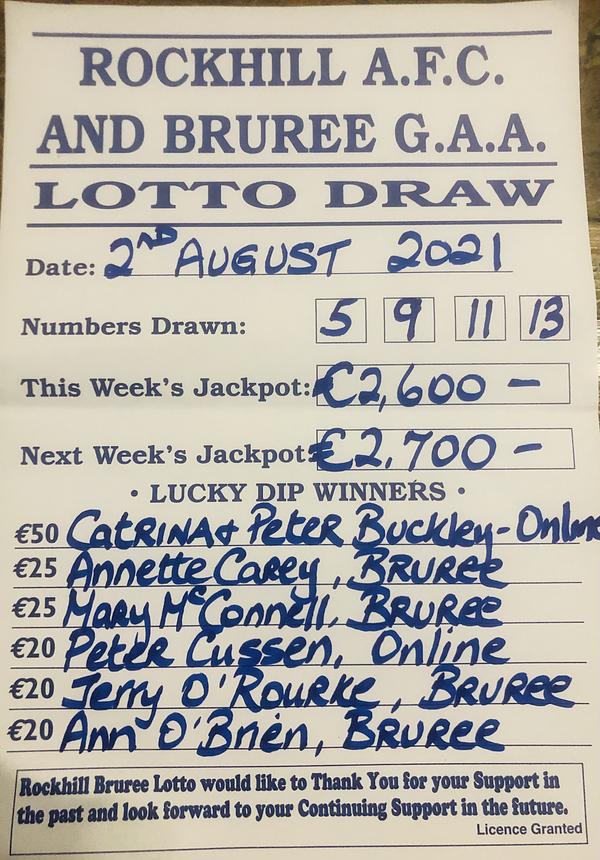 ROCKHILL A.F.C.
AND BRUREE G.A.A.
LOTTO DRAW
Date: 2ND AUGUST 2021
Numbers Drawn: 5 9 11 13
This Week's Jackpot: €2,600 -
Next Week's Jackpot: €2,700 -
• LUCKY DIP WINNERS •
€50 CATRINA & Peter Buckley - Online
€25 Annette Carey, BRUREE
€25 Mary McConnell, BRUREE
€20 Peter Cussen, Online
€20 Jerry O'Rourke, BRUREE
€20 Ann O'Brien, BRUREE
Rockhill Bruree Lotto would like to Thank You for your Support in
the past and look forward to your Continuing Support in the future.
Licence Granted